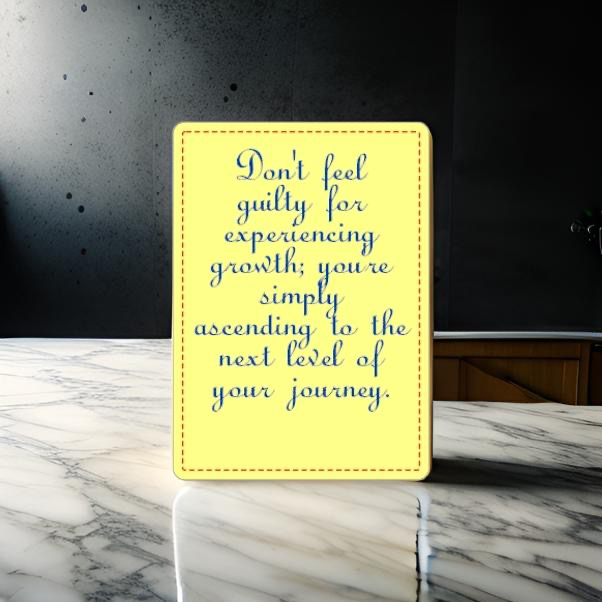 Don't feel
guilty for
experiencing
growth; you're
simply
ascending to the
next level of
your journey.